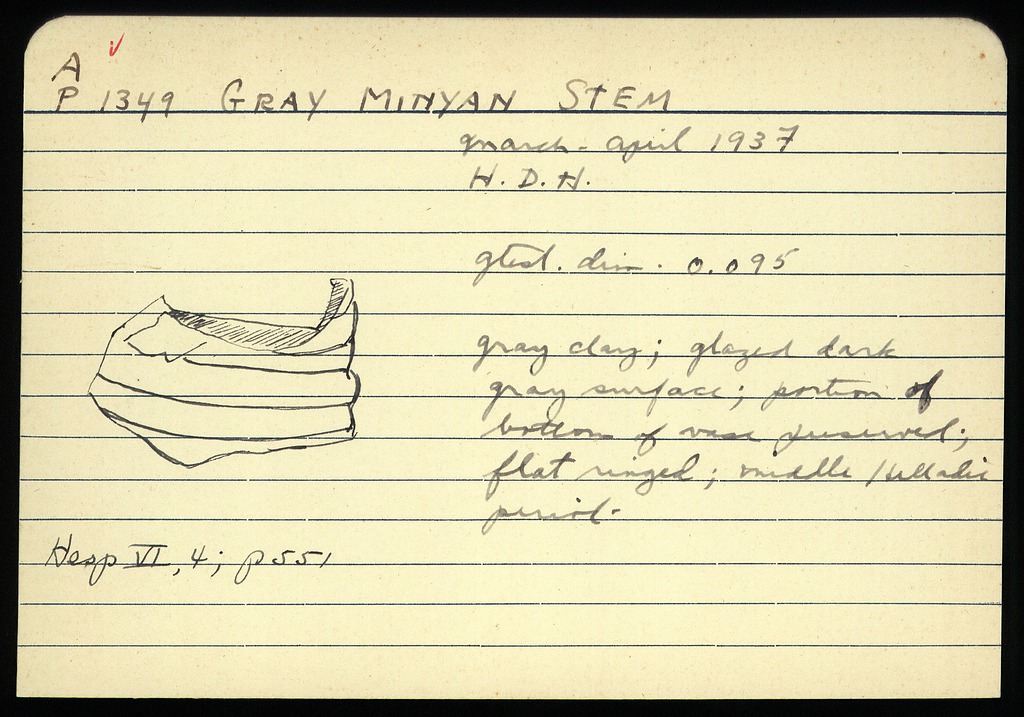 A
P 1349 GRAY MINYAN STEM
march - april 1937
H. D. H.
gtest. dim. 0.095
gray clay; glazed dark
gray surface; portion of
bottom of vase preserved;
flat ringed; middle Helladic
period.
Hesp VI, 4; p 551